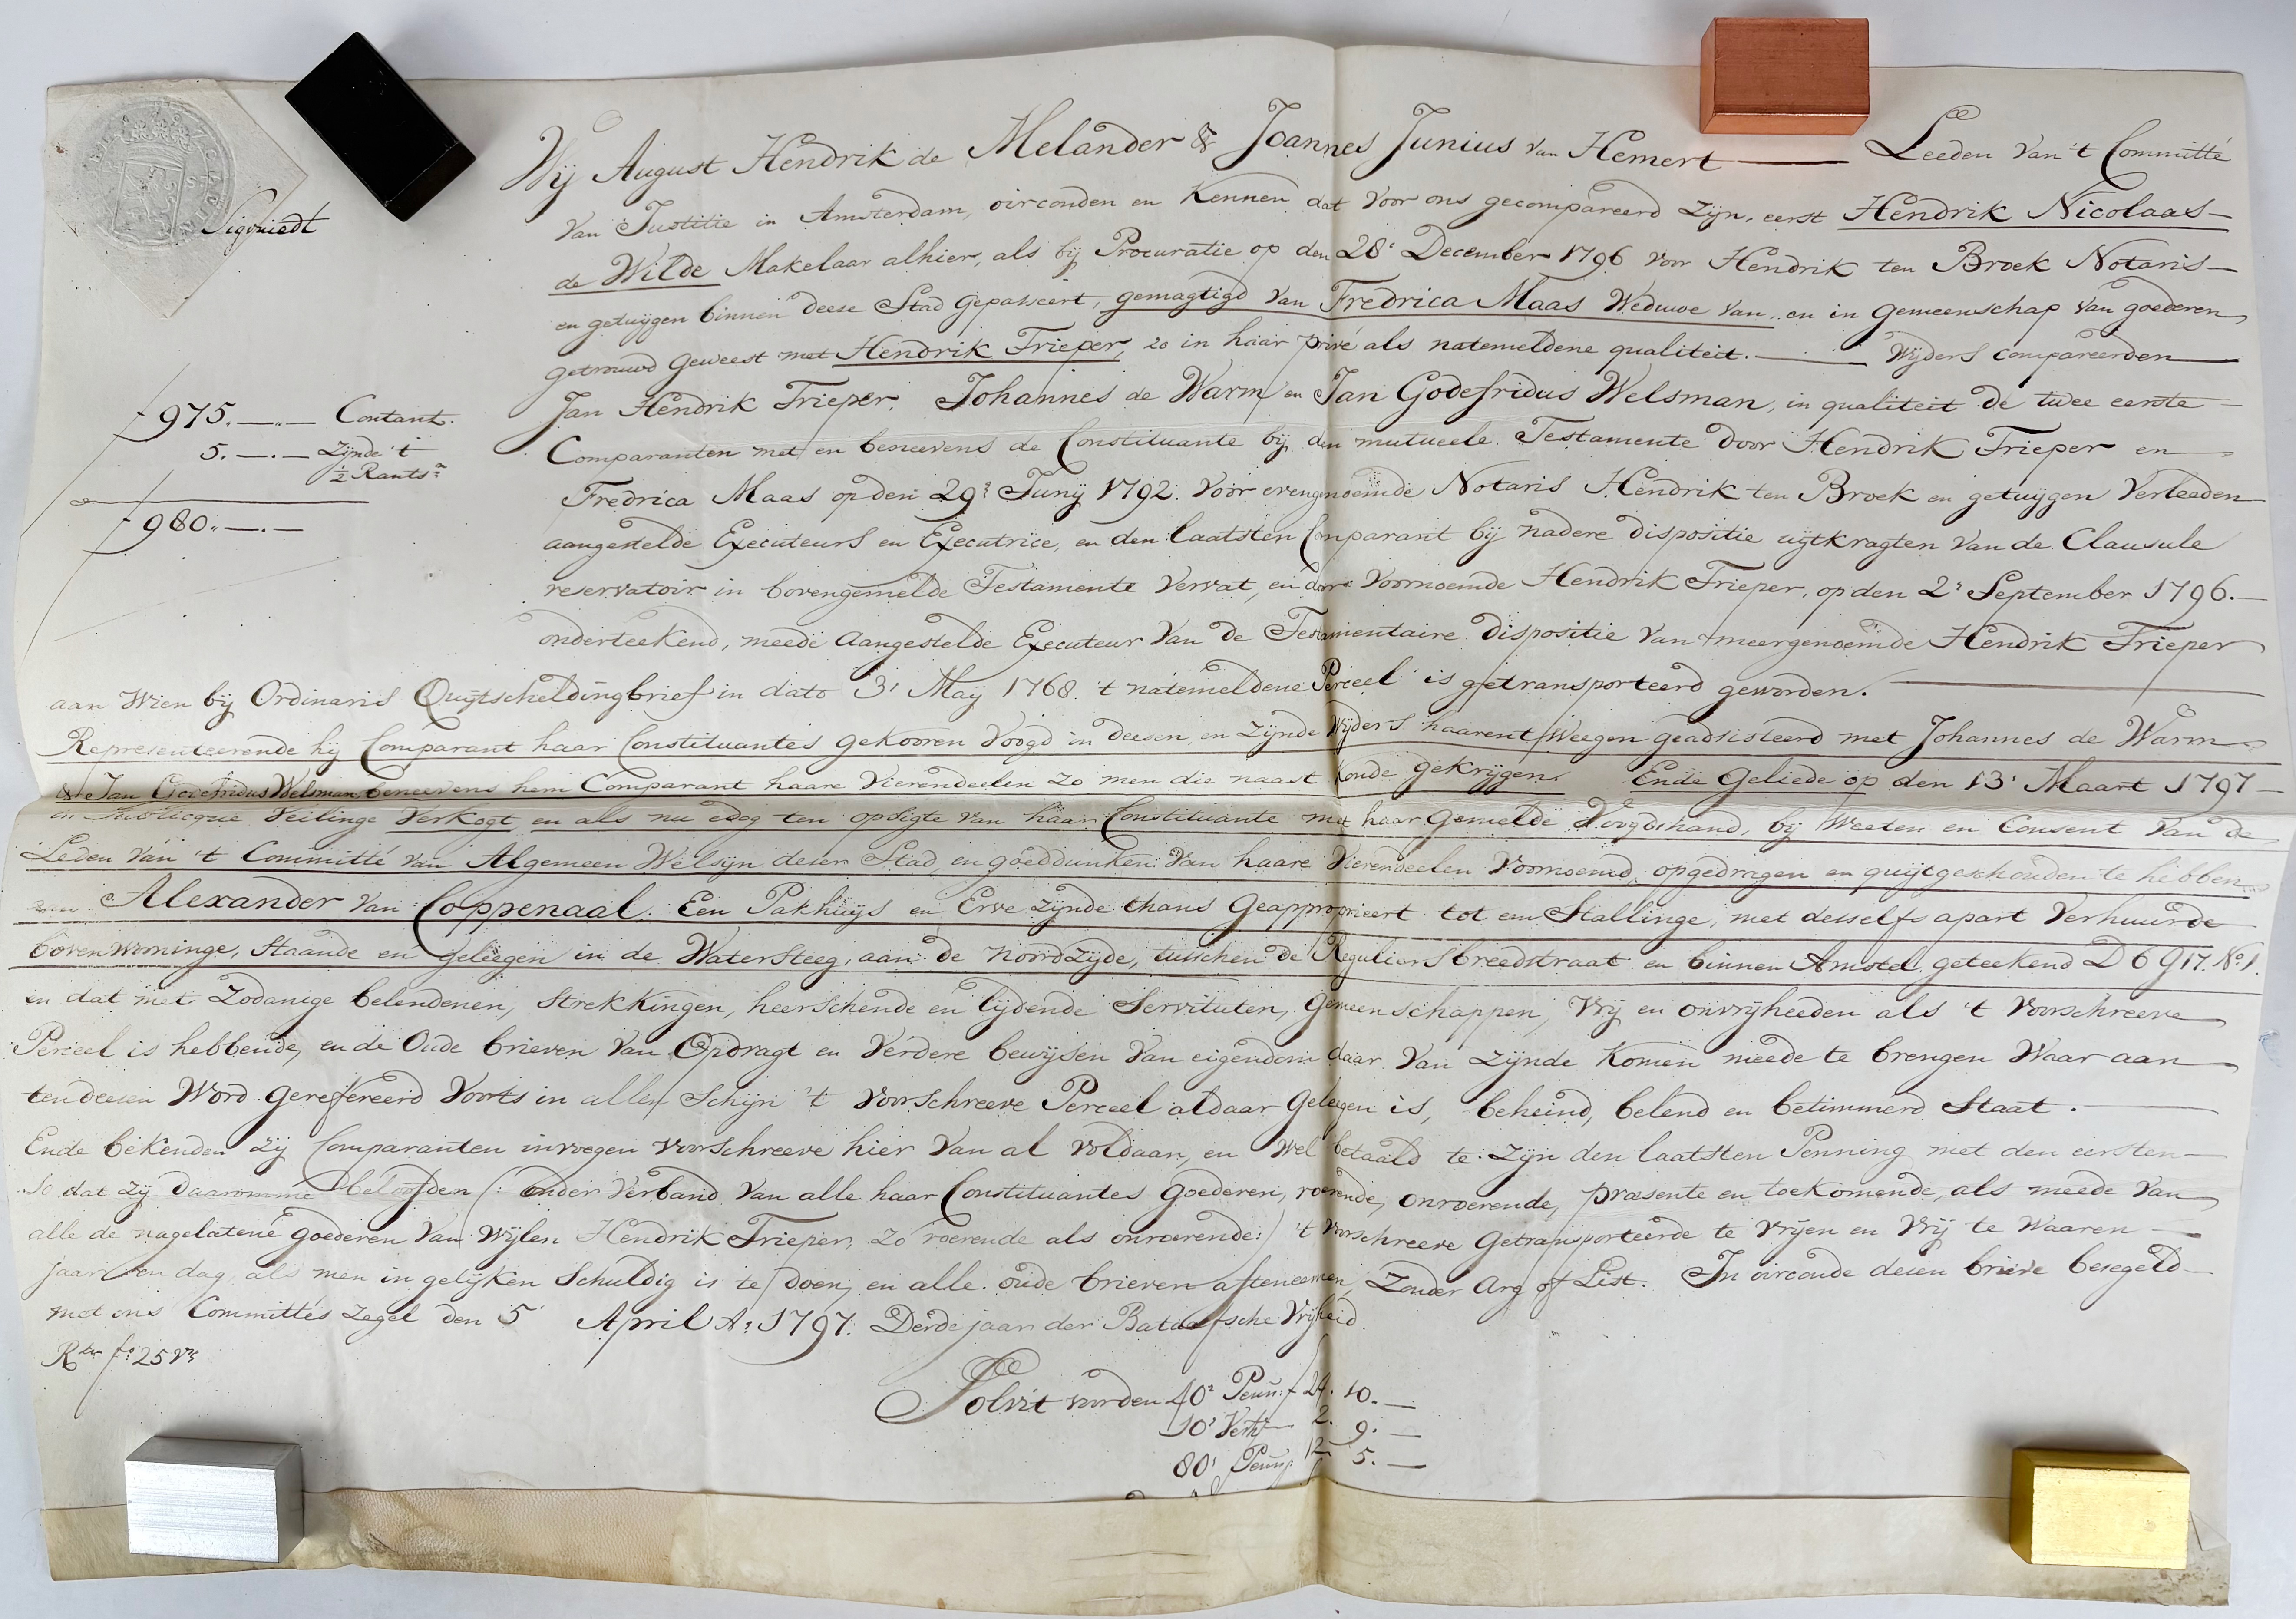 Wij August Hendrik de Melander & Joannes Junius van Hemert — Leeden van 't Committé
van Justitie in Amsterdam, oirconden en kennen dat voor ons gecompareerd zijn, eerst Hendrik Nicolaas
de Wilde Makelaar alhier, als bij Procuratie op den 28e December 1796 voor Hendrik ten Broek Notaris
en getuijgen binnen deese Stad gepasseert, gemagtigd van Fredrica Maas Weduwe van, en in gemeenschap van goederen
getrouwd geweest met Hendrik Frieper, zo in haar privé als natemeldene qualiteit. — Wijders compareerden
Jan Hendrik Frieper, Johannes de Warm en Jan Godefridus Welsman, in qualiteit de twee eerste
Comparanten met en beneevens de Constituante bij den mutueele Testamente door Hendrik Frieper en
Fredrica Maas op den 29e Junij 1792. voor evengenoemde Notaris Hendrik ten Broek en getuijgen verleeden
aangestelde Executeurs en Executrice, en den laatsten Comparant bij nadere dispositie uijtkragten van de Clausule
reservatoir in bovengemelde Testamente vervat, en door voornoemde Hendrik Frieper, op den 2e September 1796.
onderteekend, meede aangestelde Executeur van de Testamentaire dispositie van meergenoemde Hendrik Frieper
aan wien bij Ordinaris Quijtscheldingbrief in dato 31 Maij 1768. 't natemeldene Perceel is getransporteerd geworden.
Representeerende hij Comparant haar Constituantes gekooren Voogd in deesen, en zijnde wijders haarent weegen geadsisteerd met Johannes de Warm
& Jan Godefridus Welsman beneevens hem Comparant haare Vierendeelen zo men die naast konde gekrijgen. Ende geliede op den 13e Maart 1797
in Publicque Veilinge verkogt en als nu edog ten opsigte van haar Constituante met haar gemelde Voogdshand, bij weeten en Consent van de
Leden van 't Committé van Algemeen Welsijn deser Stad, en goeddunken van haare Vierendeelen voornoemd, opgedragen en quijtgeschouden te hebben
Alexander van Coppenaal. Een Pakhuijs en Erve zijnde thans geapproprieert tot een Stallinge, met desselfs apart verhuurde
bovenwoninge, staande en geleegen in de Watersteeg, aan de noordzijde, tusschen de Reguliersbreedstraat en binnen Amstel, geteekend D 6 917. No 1.
en dat met zodanige belendenen, strekkingen, heerschende en lijdende Servituten, gemeenschappen, vrij en onvrijheeden als 't voorschreeve
Perceel is hebbende, en de Oude brieven van Opdragt en verdere bewijsen van eigendom daar van zijnde komen meede te brengen waar aan
ten deesen word gerefereerd voorts in allen Schijn 't voorschreeve Perceel aldaar gelegen is, beheind, belend en betimmerd staat.
Ende bekenden zij Comparanten invoegen voorschreeve hier van al voldaan, en wel betaald te zijn den laatsten Penning met den eersten
So dat zij daaromme beloofden (: onder verband van alle haar Constituantes goederen, roerende, onroerende, præsente en toekomende, als meede van
alle de nagelatene goederen van wijlen Hendrik Frieper, zo roerende als onroerende:) 't voorschreeve getransporteerde te vrijen en vrij te waaren
jaar en dag, als men in gelijken schuldig is te doen, en alle oude brieven afteneemen, zonder arg of List. In oirconde desen brieve besegeld
met ons Committés zegel den 5 April Ao 1797. Derde jaar der Bataafsche Vrijheid.
fo 25 vs
Solvit vorden 40e Penn: f 24. 10. —
10e Verh 2. 9. —
80e Penn: 12 5. —
f 975. —.— Contant.
5. —.— Zijnde 't
½ Rants
f 980. —.—